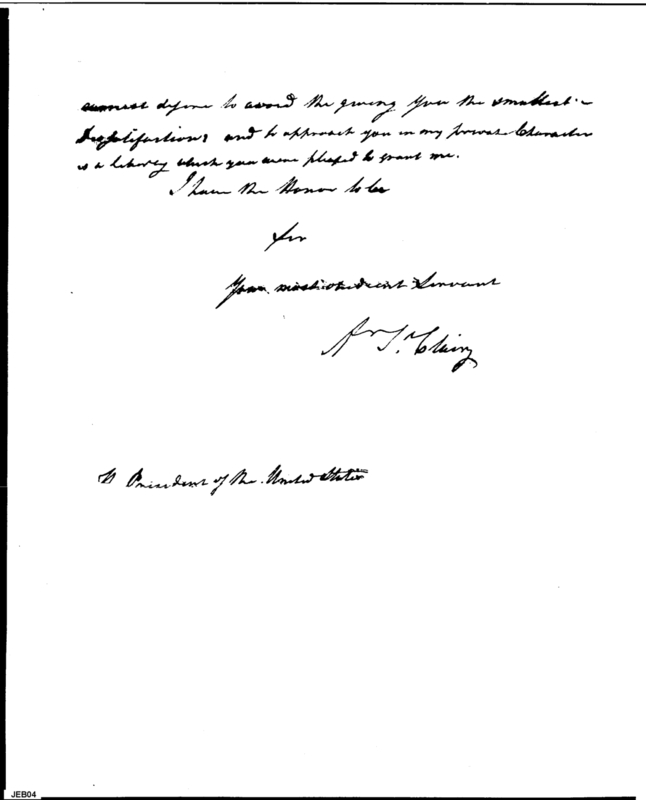 earnest desire to avoid the giving you the smallest -
Dissatisfaction; and to approach you in my private Character
is a liberty which you were pleased to grant me.
I have the Honor to be
Sir
Your most obedient Servant
Ar St. Clair
President of the United States
JEB04